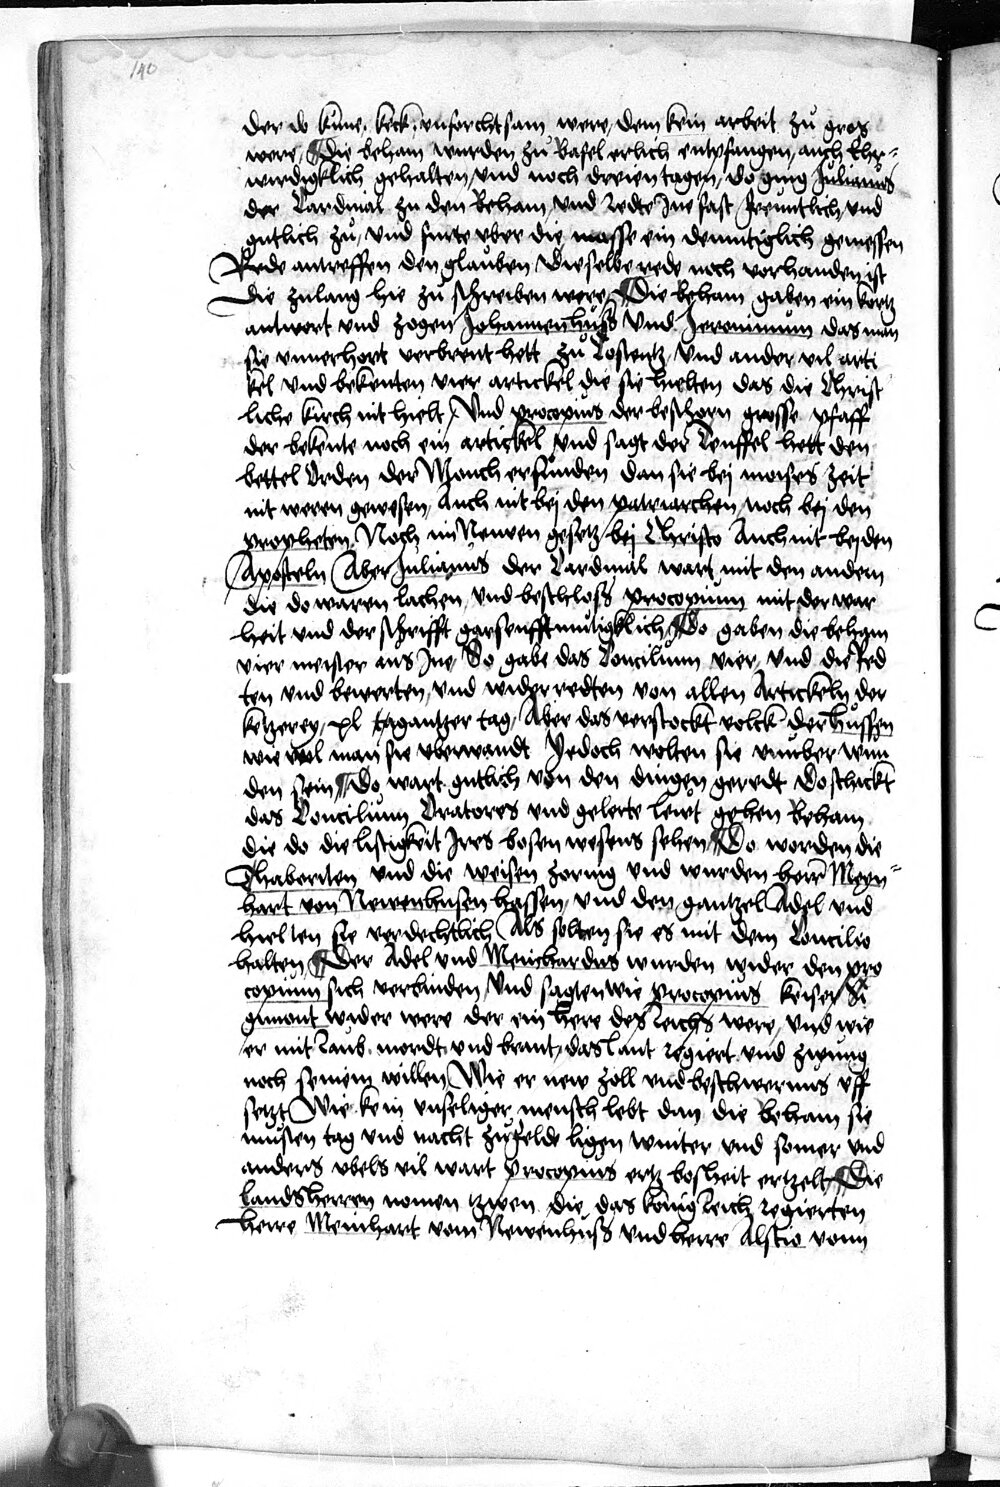 140
der do kune, keck, unforchtsam were, dem kein arbeit zu gros
were, Die beham wurden zu Basel erlich entpfangen, auch Ehr=
wirdigklich gehalten, und noch dreien tagen, do ging Julianus
der Cardinal zu den Beham, und redte Ine fast freuntlich, und
gutlich zu, und furte uber die masse ein demutiglich gemessen
Rede antreffen den glauben Dieselbe rede noch vorhanden ist
Die zulang hie zu schreiben were, Die beham gaben ein kortz
antwort und zogen Johannenhuss Und Jeronimum das man
sie unverhort verbrent hett zu Costentz, Und ander vil arti
kel Und bekenten vier artickel die sie hielten das die Christ
liche kirch nit hielt, Und procopius der beschorn grosse pfaff
der bekente noch ein artickel und sagt der Teuffel hett den
bettel Orden der Monch erfunden dan sie bei moises zeit
nit weren gewesen, Auch nit bei den patriarchen, noch bei den
propheten, Noch im Newen gesetz bej Christo Auch nit bej den
Aposteln Aber Julianus der Cardinal wart mit den andern
die do waren lachen, und beschloss procopium mit der war
heit und der schrifft gar senfftmutigklich, Do gaben die beham
vier meister aus Ine, So gabe das Concilium vier, Und die Red
ten und bewerten, und widerredten von allen Artickeln der
ketzerey, xl gantzer tag, Aber das verstockt volck der hussen
wie wol man sie uberwandt Jedoch wolten sie unuber wun
den sein, Do wart gutlich von den dingen geredt Do schickt
das Concilium Oratores und gelerte lewt gehen Beham
die do die listigkeit Irs bosen wesens sehen, Do worden die
Thaboriten und die weisen zornig und wurden herr Meyn=
hart von Newenhusen hassen, und den gantzel Adel und
hielten sie verdechtlich Als solten sie es mit dem Concilio
halten, Der Adel und Meinhardus wurden wider den pro
copium sich verbinden, Und sagten wie procopius keiser Si
gimont wider were der ein here des Reichs were, Und wie
er mit raub mordt und brant, das lant regiert und zwung
noch seinem willen, Wie er new zoll und beschwernus uff
setzt Wie kein unseliger mensch lebt dan die beham sie
musten tag und nacht zufelde ligen winter und somer und
anders ubels vil wart procopius ertz bosheit ertzelt, Die
landsherren nomen tzwen die das konigreich regierten
herre Meinhart vom Newenhuss und herre Alscio vonn